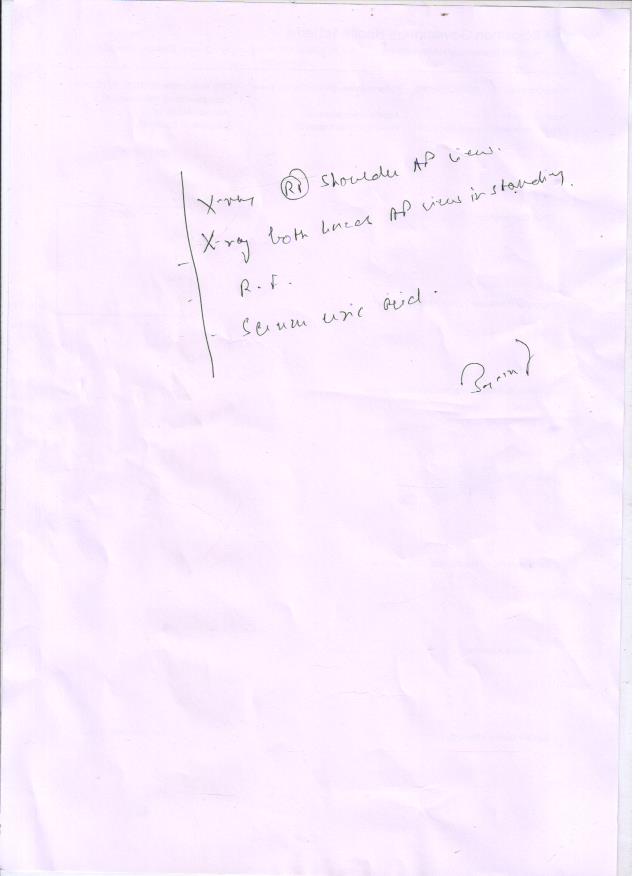 X-ray (Rt) Shoulder AP view.
X-ray both knees AP view in standing.
R.F.
Serum uric Acid.